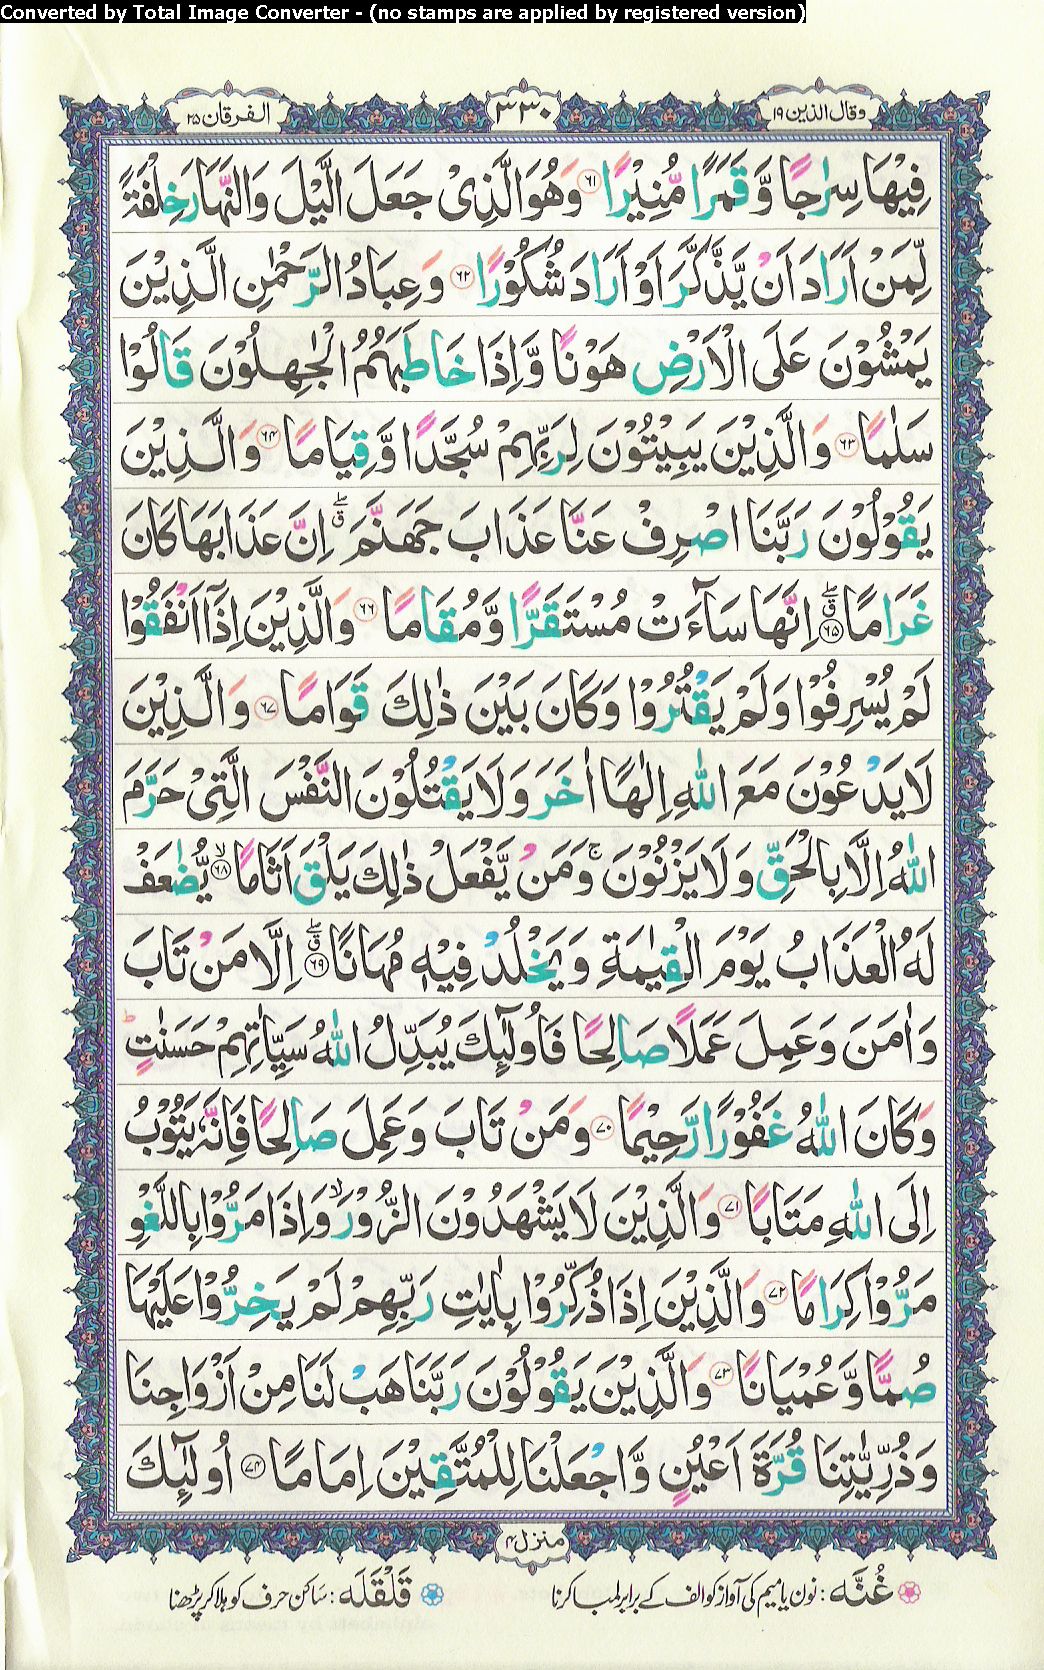 Converted by Total Image Converter - (no stamps are applied by registered version)
وقال الذین ۱۹
۳۳۰
الفرقان ۲۵
فِیْهَا سِرٰجًا وَّ قَمَرًا مُّنِیْرًا ۶۱ وَ هُوَ الَّذِیْ جَعَلَ الَّیْلَ وَ النَّهَارَ خِلْفَةً
لِّمَنْ اَرَادَ اَنْ یَّذَّكَّرَ اَوْ اَرَادَ شُكُوْرًا ۶۲ وَ عِبَادُ الرَّحْمٰنِ الَّذِیْنَ
یَمْشُوْنَ عَلَی الْاَرْضِ هَوْنًا وَّ اِذَا خَاطَبَهُمُ الْجٰهِلُوْنَ قَالُوْا
سَلٰمًا ۶۳ وَ الَّذِیْنَ یَبِیْتُوْنَ لِرَبِّهِمْ سُجَّدًا وَّ قِیَامًا ۶۴ وَ الَّذِیْنَ
یَقُوْلُوْنَ رَبَّنَا اصْرِفْ عَنَّا عَذَابَ جَهَنَّمَ ۖق اِنَّ عَذَابَهَا كَانَ
غَرَامًا ۶۵ ۖق اِنَّهَا سَآءَتْ مُسْتَقَرًّا وَّ مُقَامًا ۶۶ وَ الَّذِیْنَ اِذَاۤ اَنْفَقُوْا
لَمْ یُسْرِفُوْا وَ لَمْ یَقْتُرُوْا وَ كَانَ بَیْنَ ذٰلِكَ قَوَامًا ۶۷ وَ الَّذِیْنَ
لَا یَدْعُوْنَ مَعَ اللّٰهِ اِلٰهًا اٰخَرَ وَ لَا یَقْتُلُوْنَ النَّفْسَ الَّتِیْ حَرَّمَ
اللّٰهُ اِلَّا بِالْحَقِّ وَ لَا یَزْنُوْنَ ۚ وَ مَنْ یَّفْعَلْ ذٰلِكَ یَلْقَ اَثَامًا ۶۸ ۙ یُّضٰعَفْ
لَهُ الْعَذَابُ یَوْمَ الْقِیٰمَةِ وَ یَخْلُدْ فِیْهٖ مُهَانًا ۶۹ ۖق اِلَّا مَنْ تَابَ
وَ اٰمَنَ وَ عَمِلَ عَمَلًا صَالِحًا فَاُولٰٓئِكَ یُبَدِّلُ اللّٰهُ سَیِّاٰتِهِمْ حَسَنٰتٍ ؕ
وَ كَانَ اللّٰهُ غَفُوْرًا رَّحِیْمًا ۷۰ وَ مَنْ تَابَ وَ عَمِلَ صَالِحًا فَاِنَّهٗ یَتُوْبُ
اِلَی اللّٰهِ مَتَابًا ۷۱ وَ الَّذِیْنَ لَا یَشْهَدُوْنَ الزُّوْرَ ۙ وَ اِذَا مَرُّوْا بِاللَّغْوِ
مَرُّوْا كِرَامًا ۷۲ وَ الَّذِیْنَ اِذَا ذُكِّرُوْا بِاٰیٰتِ رَبِّهِمْ لَمْ یَخِرُّوْا عَلَیْهَا
صُمًّا وَّ عُمْیَانًا ۷۳ وَ الَّذِیْنَ یَقُوْلُوْنَ رَبَّنَا هَبْ لَنَا مِنْ اَزْوَاجِنَا
وَ ذُرِّیّٰتِنَا قُرَّةَ اَعْیُنٍ وَّ اجْعَلْنَا لِلْمُتَّقِیْنَ اِمَامًا ۷۴ اُولٰٓئِكَ
منزل ۴
غُنَّه : نون یا میم کی آواز کو الف کے برابر لمبا کرنا
قَلْقَلَه : ساکن حرف کو ہلا کر پڑھنا